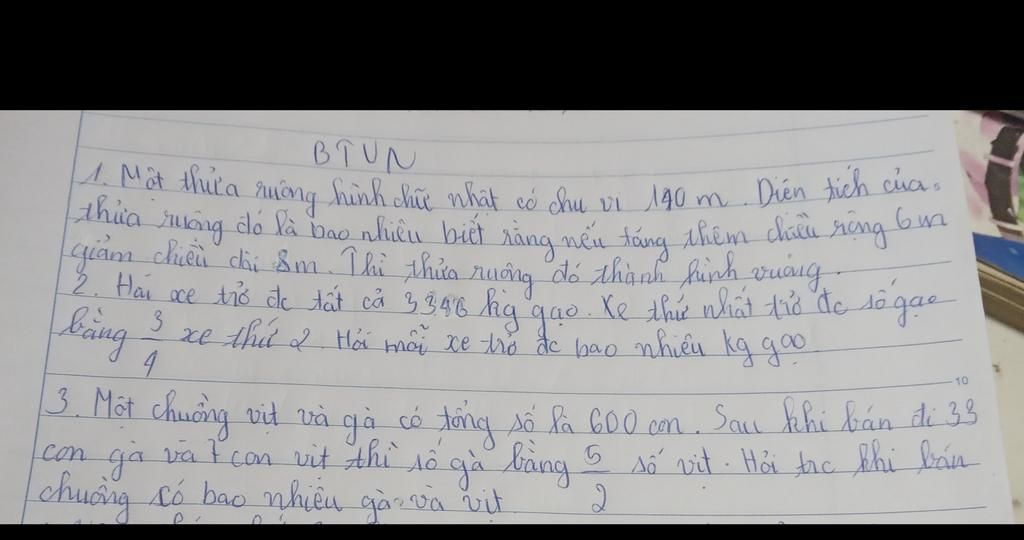 BTVN
1. Một thửa ruộng hình chữ nhật có chu vi 140 m. Diện tích của
thửa ruộng đó là bao nhiêu biết rằng nếu tăng thêm chiều rộng 6m
giảm chiều dài 8m. Thì thửa ruộng đó thành hình vuông.
2. Hai xe trở đc tất cả 3346 kg gạo. Xe thứ nhất trở đc số gạo
bằng 3/4 xe thứ 2. Hỏi mỗi xe trở đc bao nhiêu kg gạo
10
3. Một chuồng vịt và gà có tổng số là 600 con. Sau khi bán đi 33
con gà và 7 con vịt thì số gà bằng 5/2 số vịt. Hỏi trc khi bán
chuồng có bao nhiêu gà và vịt